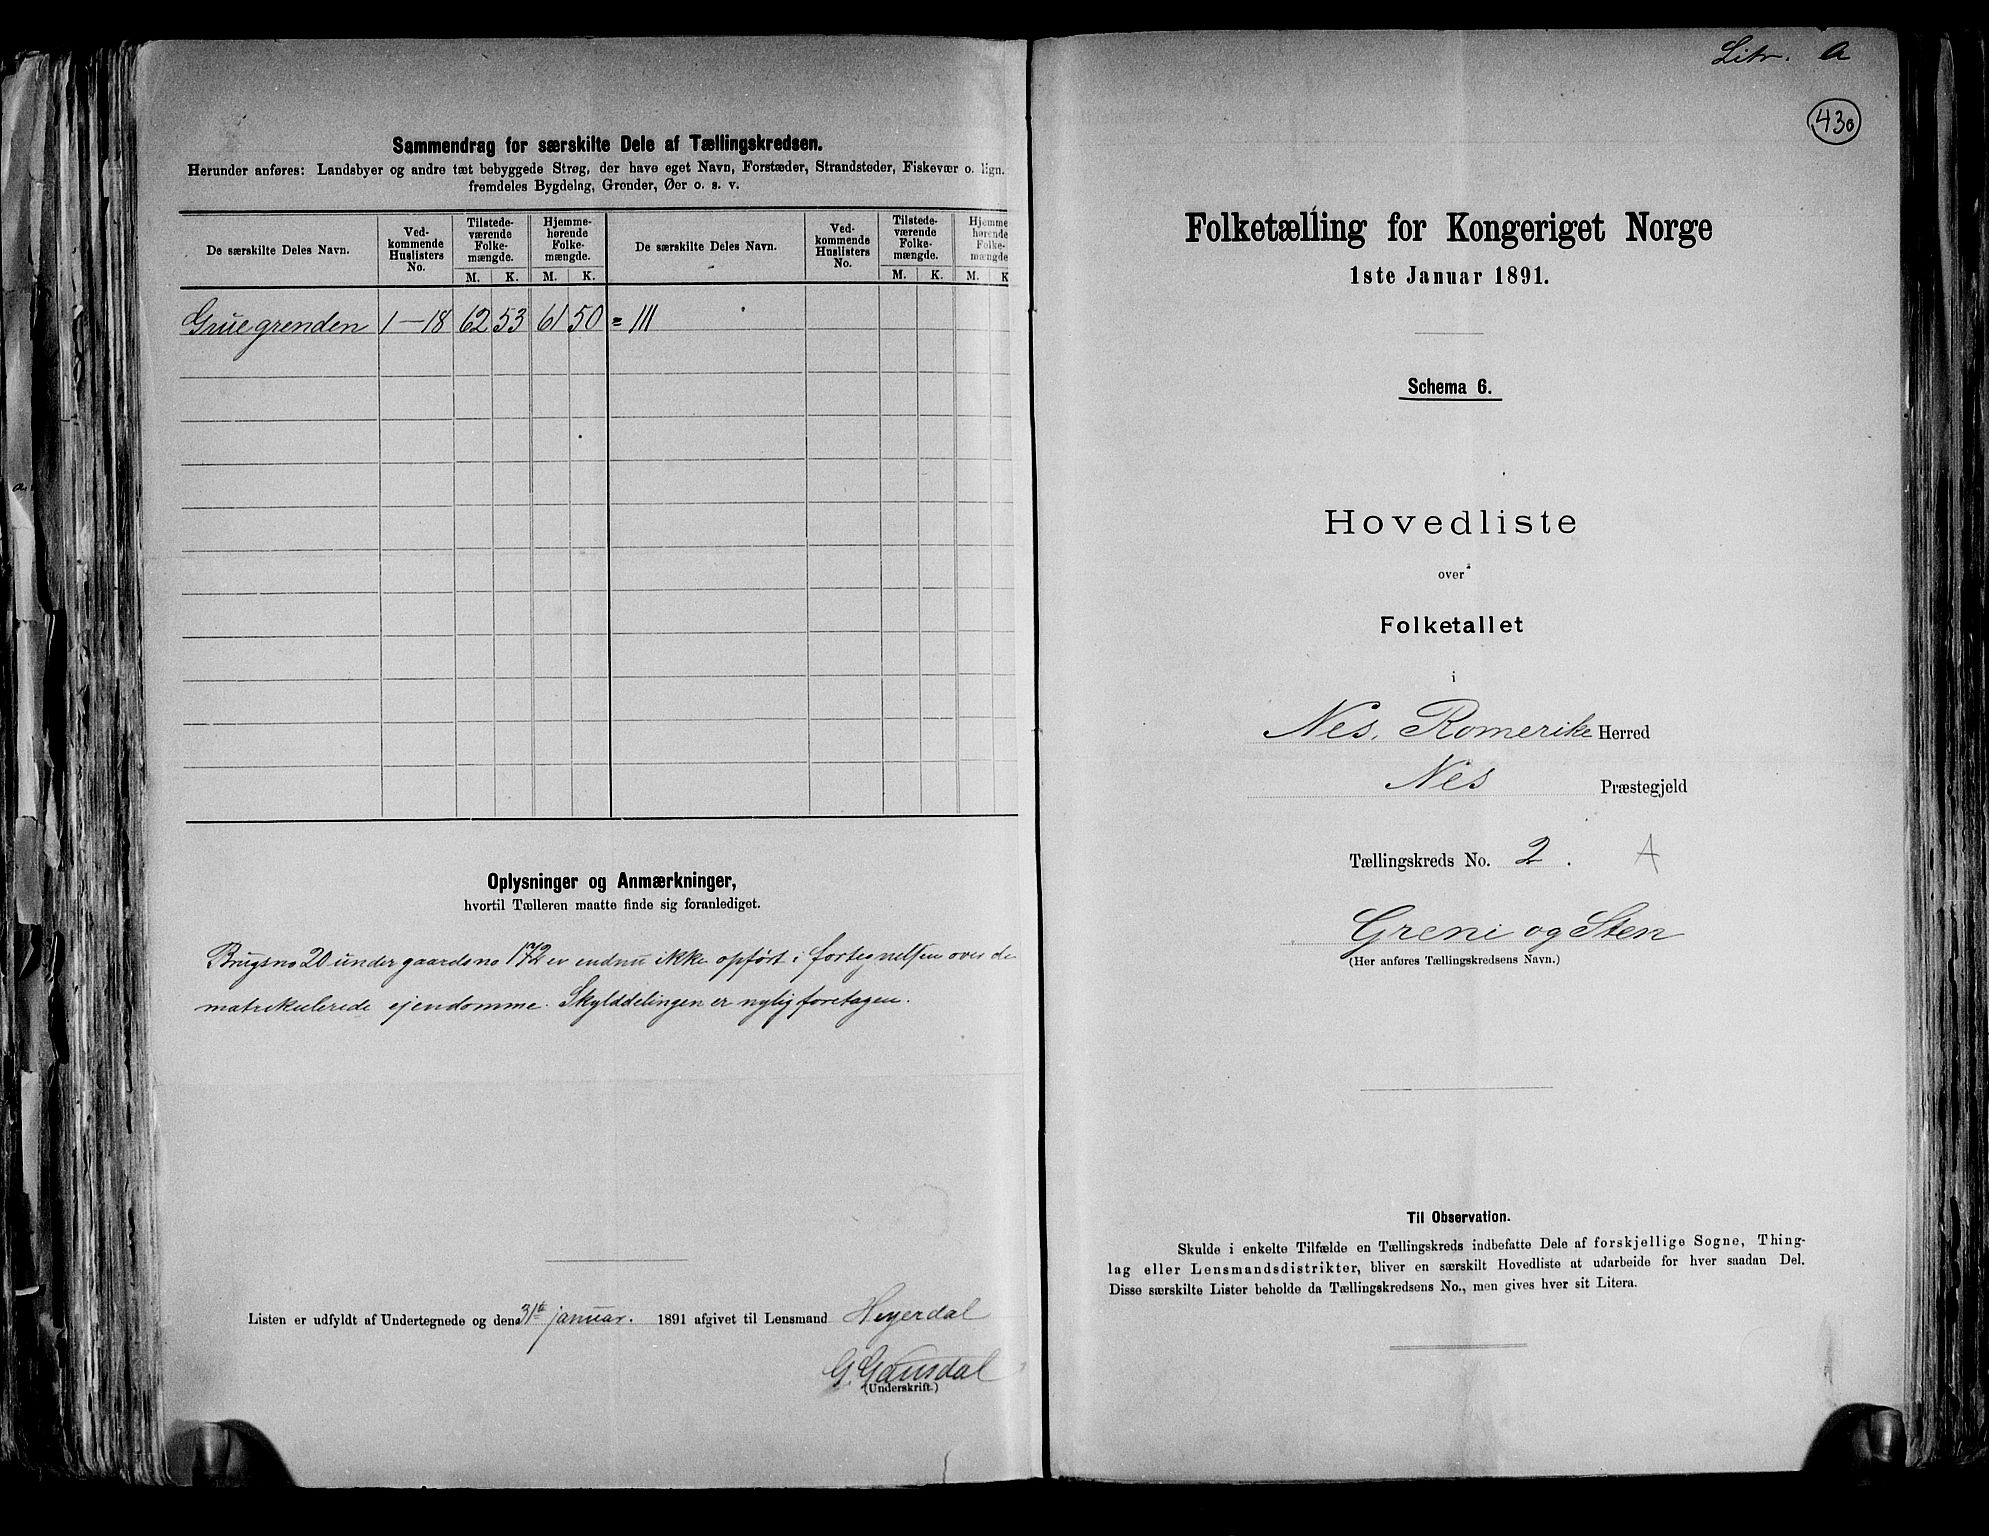 Sammendrag for særskilte Dele af Tællingskredsen.
Herunder anføres: Landsbyer og andre tæt bebyggede Strøg, der have eget Navn, Forstæder, Strandsteder, Fiskevær o. lign.
fremdeles Bygdelag, Grender, Øer o. s. v.
De særskilte Deles Navn.
Ved-
kommende
Huslisters
No.
Tilstede-
værende
Folke-
mængde.
M. K.
Hjemme-
hørende
Folke-
mængde.
M. K.
De særskilte Deles Navn.
Ved-
kommende
Huslisters
No.
Tilstede-
værende
Folke-
mængde.
M. K.
Hjemme
hørende
Folke-
mængde
M. K
Gruegrenden 1-18 62 53 61 50 = 111
Oplysninger og Anmærkninger,
hvortil Tælleren maatte finde sig foranlediget.
Brugsno 20 under gaardsno 172 er endnu ikke opført i fortegnelsen over de
matrikulerede ejendomme. Skylddelingen er nylig foretagen.
Listen er udfyldt af Undertegnede og den 31te januar. 1891 afgivet til Lensmand Heyerdal
G. Gausdal
(Underskrift.)
Litr. A
430
Folketælling for Kongeriget Norge
1ste Januar 1891.
Schema 6.
Hovedliste
over
Folketallet
i
Nes, Romerike Herred
Nes Præstegjeld
Tællingskreds No. 2. A
Greni og Sten
(Her anføres Tællingskredsens Navn.)
Til Observation.
Skulde i enkelte Tilfælde en Tællingskreds indbefatte Dele af forskjellige Sogne, Thing-
lag eller Lensmandsdistrikter, bliver en særskilt Hovedliste at udarbeide for hver saadan Del.
Disse særskilte Lister beholde da Tællingskredsens No., men gives hver sit Litera.